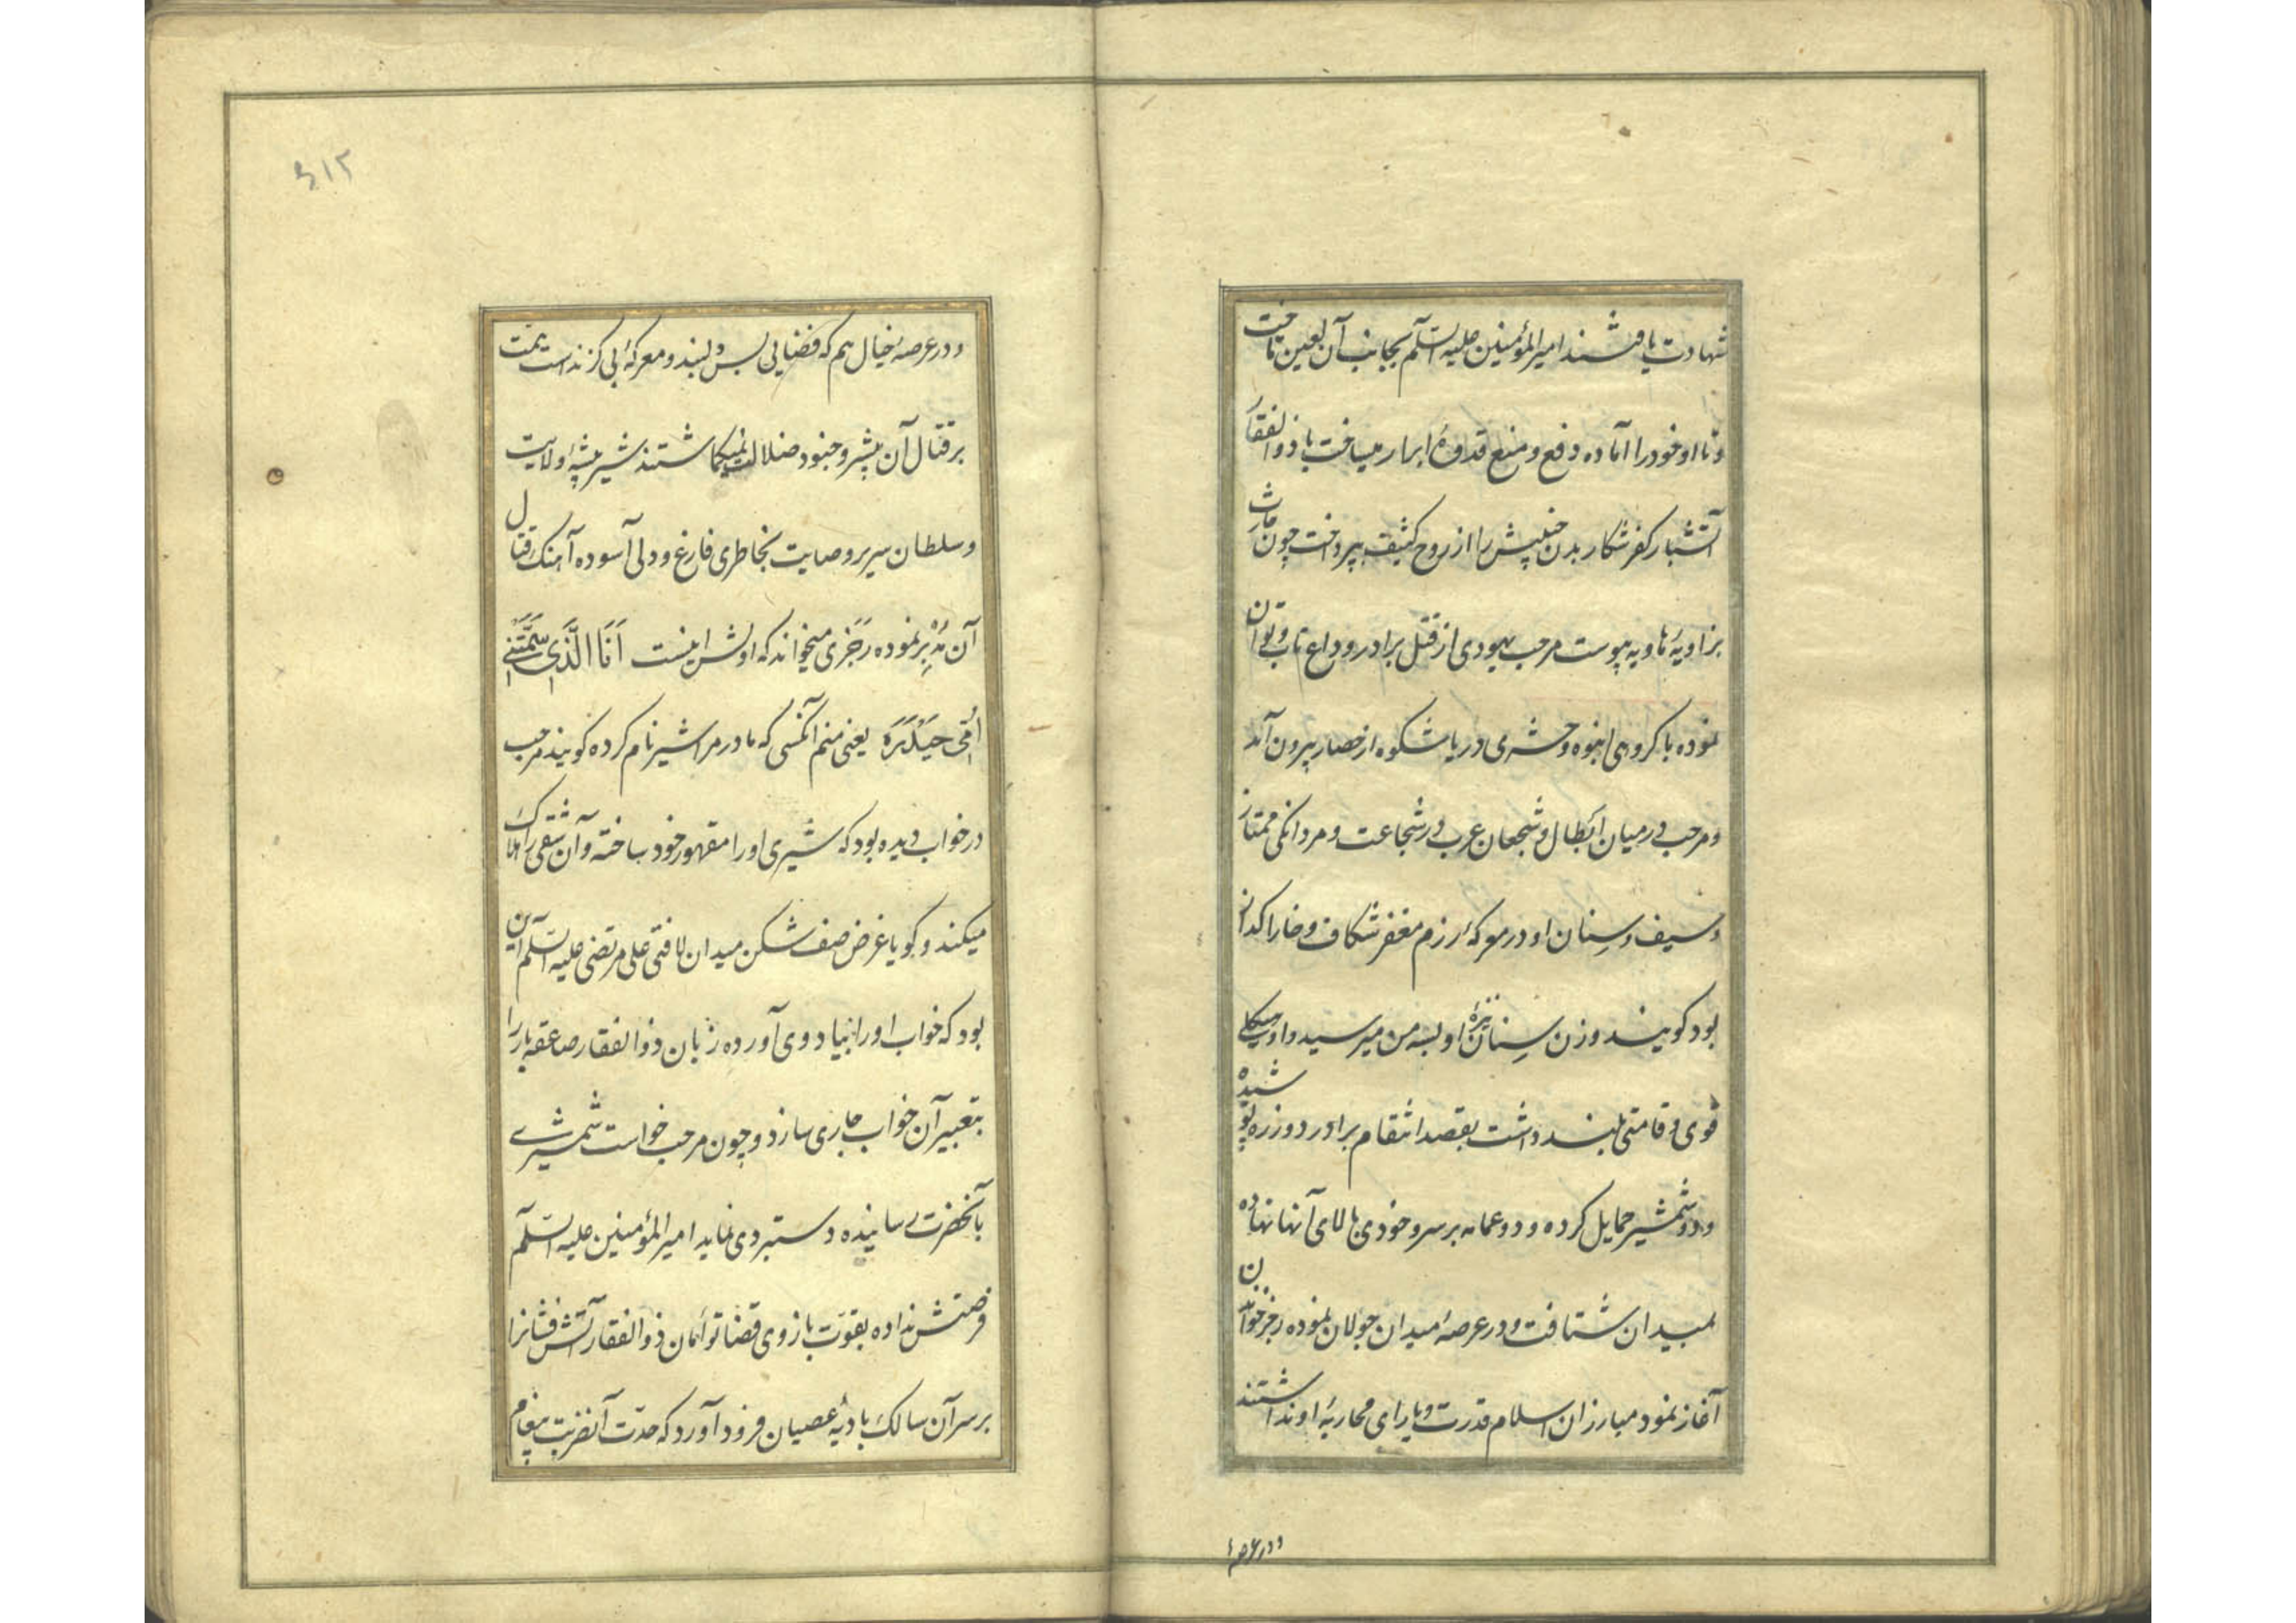 شهادت یافتند امیرالمؤمنین علیه السلام بجانب آن لعین تاخت
و تا او خود را آماده دفع و منع قدوهٔ ابرار میساخت با ذوالفقار
آتشبار کفر شکار بدن خبیثش را از روح کثیف بپرداخت چون حارث
بزاویهٔ هاویه پیوست مرحب یهودی از قتل برادر وداع تاب و توان
نموده با کروهی انبوه و حشری دریا شکوه از حصار بیرون آمد
و مرحب در میان ابطال و شجعان عرب در شجاعت و مردانکی ممتاز
و سیف و سنان او در معرکهٔ رزم مغفر شکاف و خارا کداز
بود کویند وزن سنان نیزهٔ او بسه من میرسید و او هیکلی
قوی و قامتی بلند داشت بقصد انتقام برادر دو زره پوشیده
و دو شمشیر حمایل کرده و دو عمامه بر سر و خودی بالای آنها نهاده
بمیدان شتافت و در عرصهٔ میدان جولان نموده رجز خواندن
آغاز نمود مبارزان اسلام قدرت و یارای محاربهٔ او نداشتند
و در عرصهٔ
۶۱۲
و در عرصهٔ خیال هم که فضایی بس بلند و معرکهٔ بی کزند است همت
بر قتال آن پیشرو جنود ضلالت نمیکماشتند شیر بیشهٔ ولایت
و سلطان سریر وصایت بخاطری فارغ و دلی آسوده آهنک قتال
آن مدبر نموده رجزی میخواند که اولش اینست اَنَا الَّذی سَمَّتنی
اُمّی حَیدَرَه یعنی منم آنکسی که مادر مرا شیر نام کرده کویند مرحب
در خواب دیده بود که شیری او را مقهور خود ساخته و آن شقی را هلاک
میکند و کویا غرض صف شکن میدان لافتی علی مرتضی علیه السلام این
بود که خواب او را بیاد وی آورده زبان ذوالفقار صاعقه بار را
بتعبیر آن خواب جاری سازد و چون مرحب خواست شمشیری
بآنحضرت رسانیده دستبردی نماید امیرالمؤمنین علیه السلام
فرصتش نداده بقوت بازوی قضا توأمان ذوالفقار آتش فشانرا
بر سر آن سالک بادیهٔ عصیان فرود آورد که حدّت آنضربت پیغام